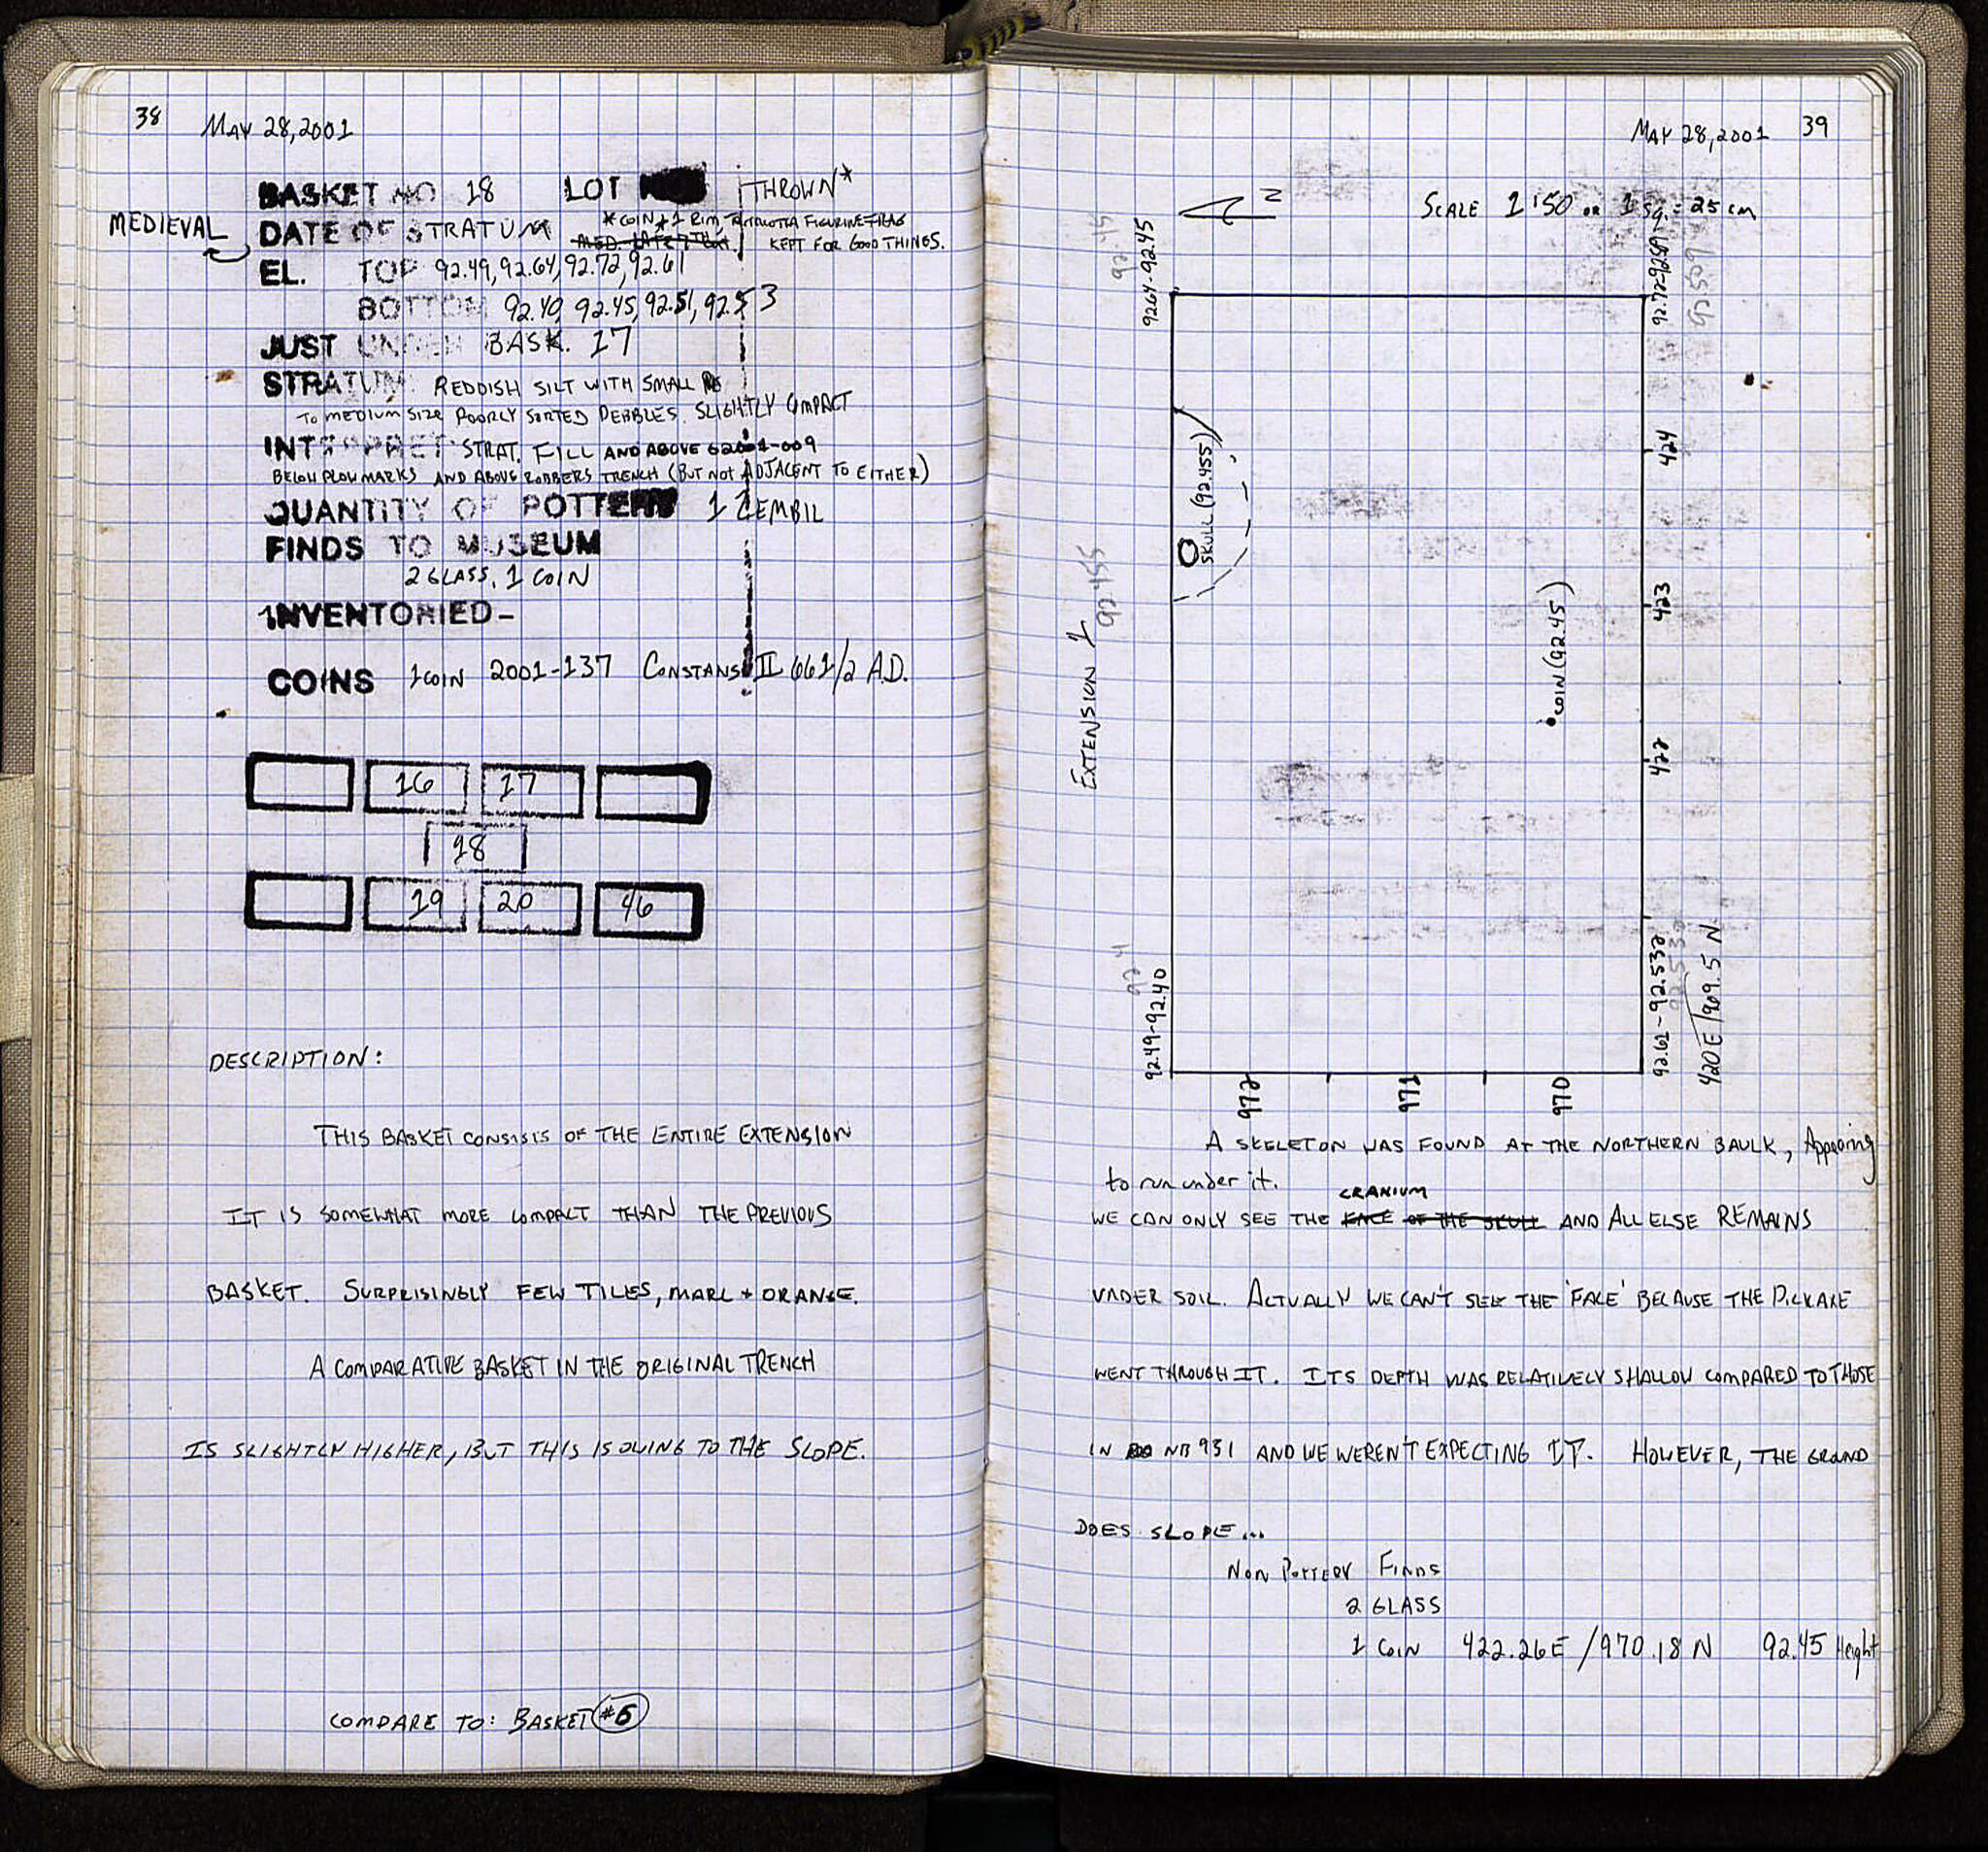 38 MAY 28, 2001
BASKET NO 18 LOT THROWN*
MEDIEVAL
DATE OF STRATUM * COIN + 1 RIM, TERRACOTTA FIGURINE FRAG
MED. LATE 7TH A. KEPT FOR GOOD THINGS.
EL. TOP 92.49, 92.64, 92.72, 92.61
BOTTOM 92.40, 92.45, 92.51, 92.53
JUST UNDER BASK. 17
STRATUM: REDDISH SILT WITH SMALL
TO MEDIUM SIZE POORLY SORTED PEBBLES. SLIGHTLY COMPACT
INTERPRET. STRAT. FILL AND ABOVE G2001-009
BELOW PLOW MARKS AND ABOVE ROBBERS TRENCH (BUT NOT ADJACENT TO EITHER)
QUANTITY OF POTTERY 1 ZEMBIL
FINDS TO MUSEUM
2 GLASS, 1 COIN
INVENTORIED-
COINS 1 COIN 2001-137 CONSTANS II 661/2 A.D.
16 17
18
19 20 46
DESCRIPTION:
THIS BASKET CONSISTS OF THE ENTIRE EXTENSION
IT IS SOMEWHAT MORE COMPACT THAN THE PREVIOUS
BASKET. SURPRISINGLY FEW TILES, MARL + ORANGE.
A COMPARATIVE BASKET IN THE ORIGINAL TRENCH
IS SLIGHTLY HIGHER, BUT THIS IS OWING TO THE SLOPE.
COMPARE TO: BASKET #6
MAY 28, 2001 39
N
SCALE 1:50 or 1 sq. = 25 cm
92.45
92.64-92.45
92.72-92.509
92.509
SKULL (92.455)
92.455
EXTENSION 1
COIN (92.45)
424
423
422
92.4
92.49-92.40
92.61-92.532
92.532
420 E/969.5 N
972 971 970
A SKELETON WAS FOUND AT THE NORTHERN BAULK, Appearing
to run under it.
CRANIUM
WE CAN ONLY SEE THE FACE OF THE SKULL AND ALL ELSE REMAINS
UNDER SOIL. ACTUALLY WE CAN'T SEE THE 'FACE' BECAUSE THE PICKAXE
WENT THROUGH IT. ITS DEPTH WAS RELATIVELY SHALLOW COMPARED TO THOSE
IN NB 931 AND WE WEREN'T EXPECTING IT. HOWEVER, THE GROUND
DOES SLOPE...
NON POTTERY FINDS
2 GLASS
1 COIN 422.26 E / 970.18 N 92.45 Height